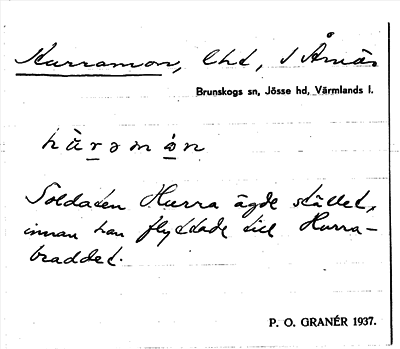 Hurramon, lht, i Åmås
Brunskogs sn, Jösse hd, Värmlands l.
hùrəmòn
Soldaten Hurra ägde stället,
innan han flyttade till Hurra-
braddet.
P. O. GRANÉR 1937.